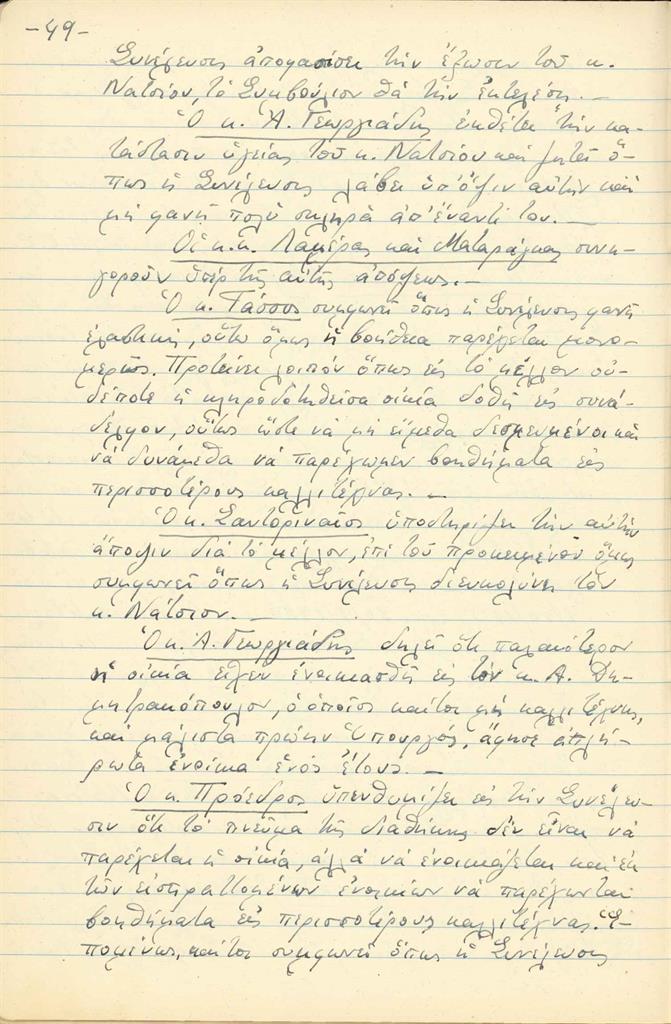 -49-
Συνέλευσις ἀποφασίσει τὴν ἔξωσιν τοῦ κ.
Νάτσιου, τὸ Συμβούλιον θὰ τὴν ἐκτελέσῃ. —
Ὁ κ. Ἀ. Γεωργιάδης ἐκθέτει τὴν κα-
τάστασιν ὑγείας τοῦ κ. Νάτσιου καὶ ζητεῖ ὅ-
πως ἡ Συνέλευσις λάβει ὑπ' ὄψιν αὐτὴν καὶ
μὴ φανῇ πολὺ σκληρὰ ἀπέναντί του. —
Οἱ κ.κ. Λαμέρας καὶ Ματαράγκας συνη-
γοροῦν ὑπὲρ τῆς αὐτῆς ἀπόψεως. —
Ὁ κ. Τάσσος συμφωνεῖ ὅπως ἡ Συνέλευσις φανῇ
ἐλαστική, οὕτω ὅμως ἡ βοήθεια παρέχεται μονο-
μερῶς. Προτείνει λοιπὸν ὅπως εἰς τὸ μέλλον οὐ-
δέποτε ἡ κληροδοτηθεῖσα οἰκία δοθῇ εἰς συνά-
δελφον, οὕτως ὥστε νὰ μὴ εἴμεθα δεσμευμένοι καὶ
νὰ δυνάμεθα νὰ παρέχωμεν βοηθήματα εἰς
περισσοτέρους καλλιτέχνας. —
Ὁ κ. Σαντοριναῖος ὑποστηρίζει τὴν αὐτὴν
ἄποψιν διὰ τὸ μέλλον, ἐπὶ τοῦ προκειμένου ὅμως
συμφωνεῖ ὅπως ἡ Συνέλευσις διευκολύνει τὸν
κ. Νάτσιον. —
Ὁ κ. Ἀ. Γεωργιάδης δηλεῖ ὅτι παλαιότερον
ἡ οἰκία εἶχεν ἐνοικιασθῇ εἰς τὸν κ. Α. Δη-
μητρακόπουλον, ὁ ὁποῖος καίτοι μὴ καλλιτέχνης,
καὶ μάλιστα πρώην Ὑπουργός, ἄφησε ἀπλή-
ρωτα ἐνοίκια ἑνὸς ἔτους. —
Ὁ κ. Πρόεδρος ὑπενθυμίζει εἰς τὴν Συνέλευ-
σιν ὅτι τὸ πνεῦμα τῆς διαθήκης δὲν εἶναι νὰ
παρέχεται ἡ οἰκία, ἀλλὰ νὰ ἐνοικιάζεται καὶ ἐκ
τῶν εἰσπραττομένων ἐνοικίων νὰ παρέχωνται
βοηθήματα εἰς περισσοτέρους καλλιτέχνας. Ἑ-
πομένως, καίτοι συμφωνεῖ ὅπως ἡ Συνέλευσις